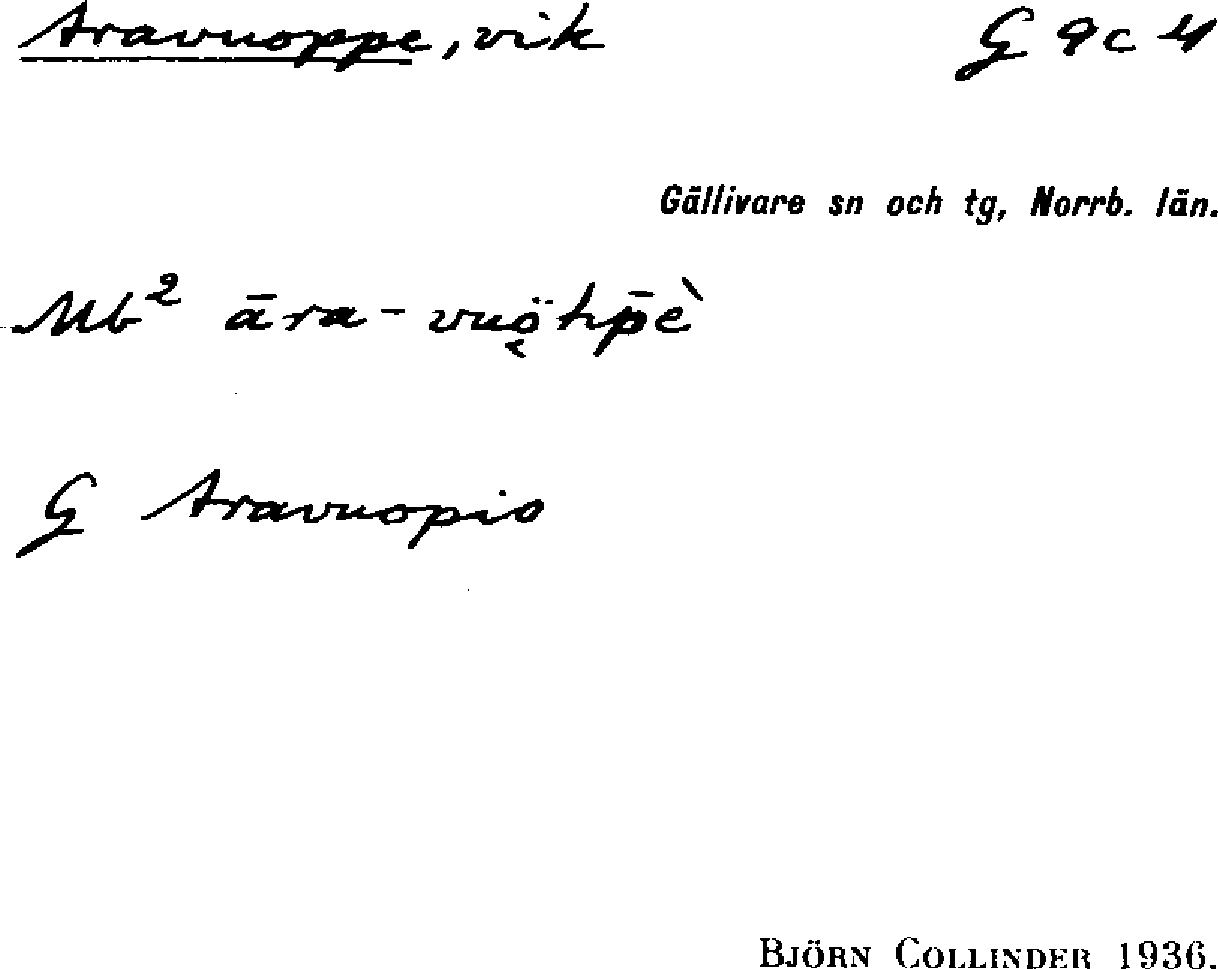 Aravuoppe, vik G 9c 4
Gällivare sn och tg, Norrb. län.
Mb² āra-vuö̬hp̄è
G Aravuopio
BJÖRN COLLINDER 1936.